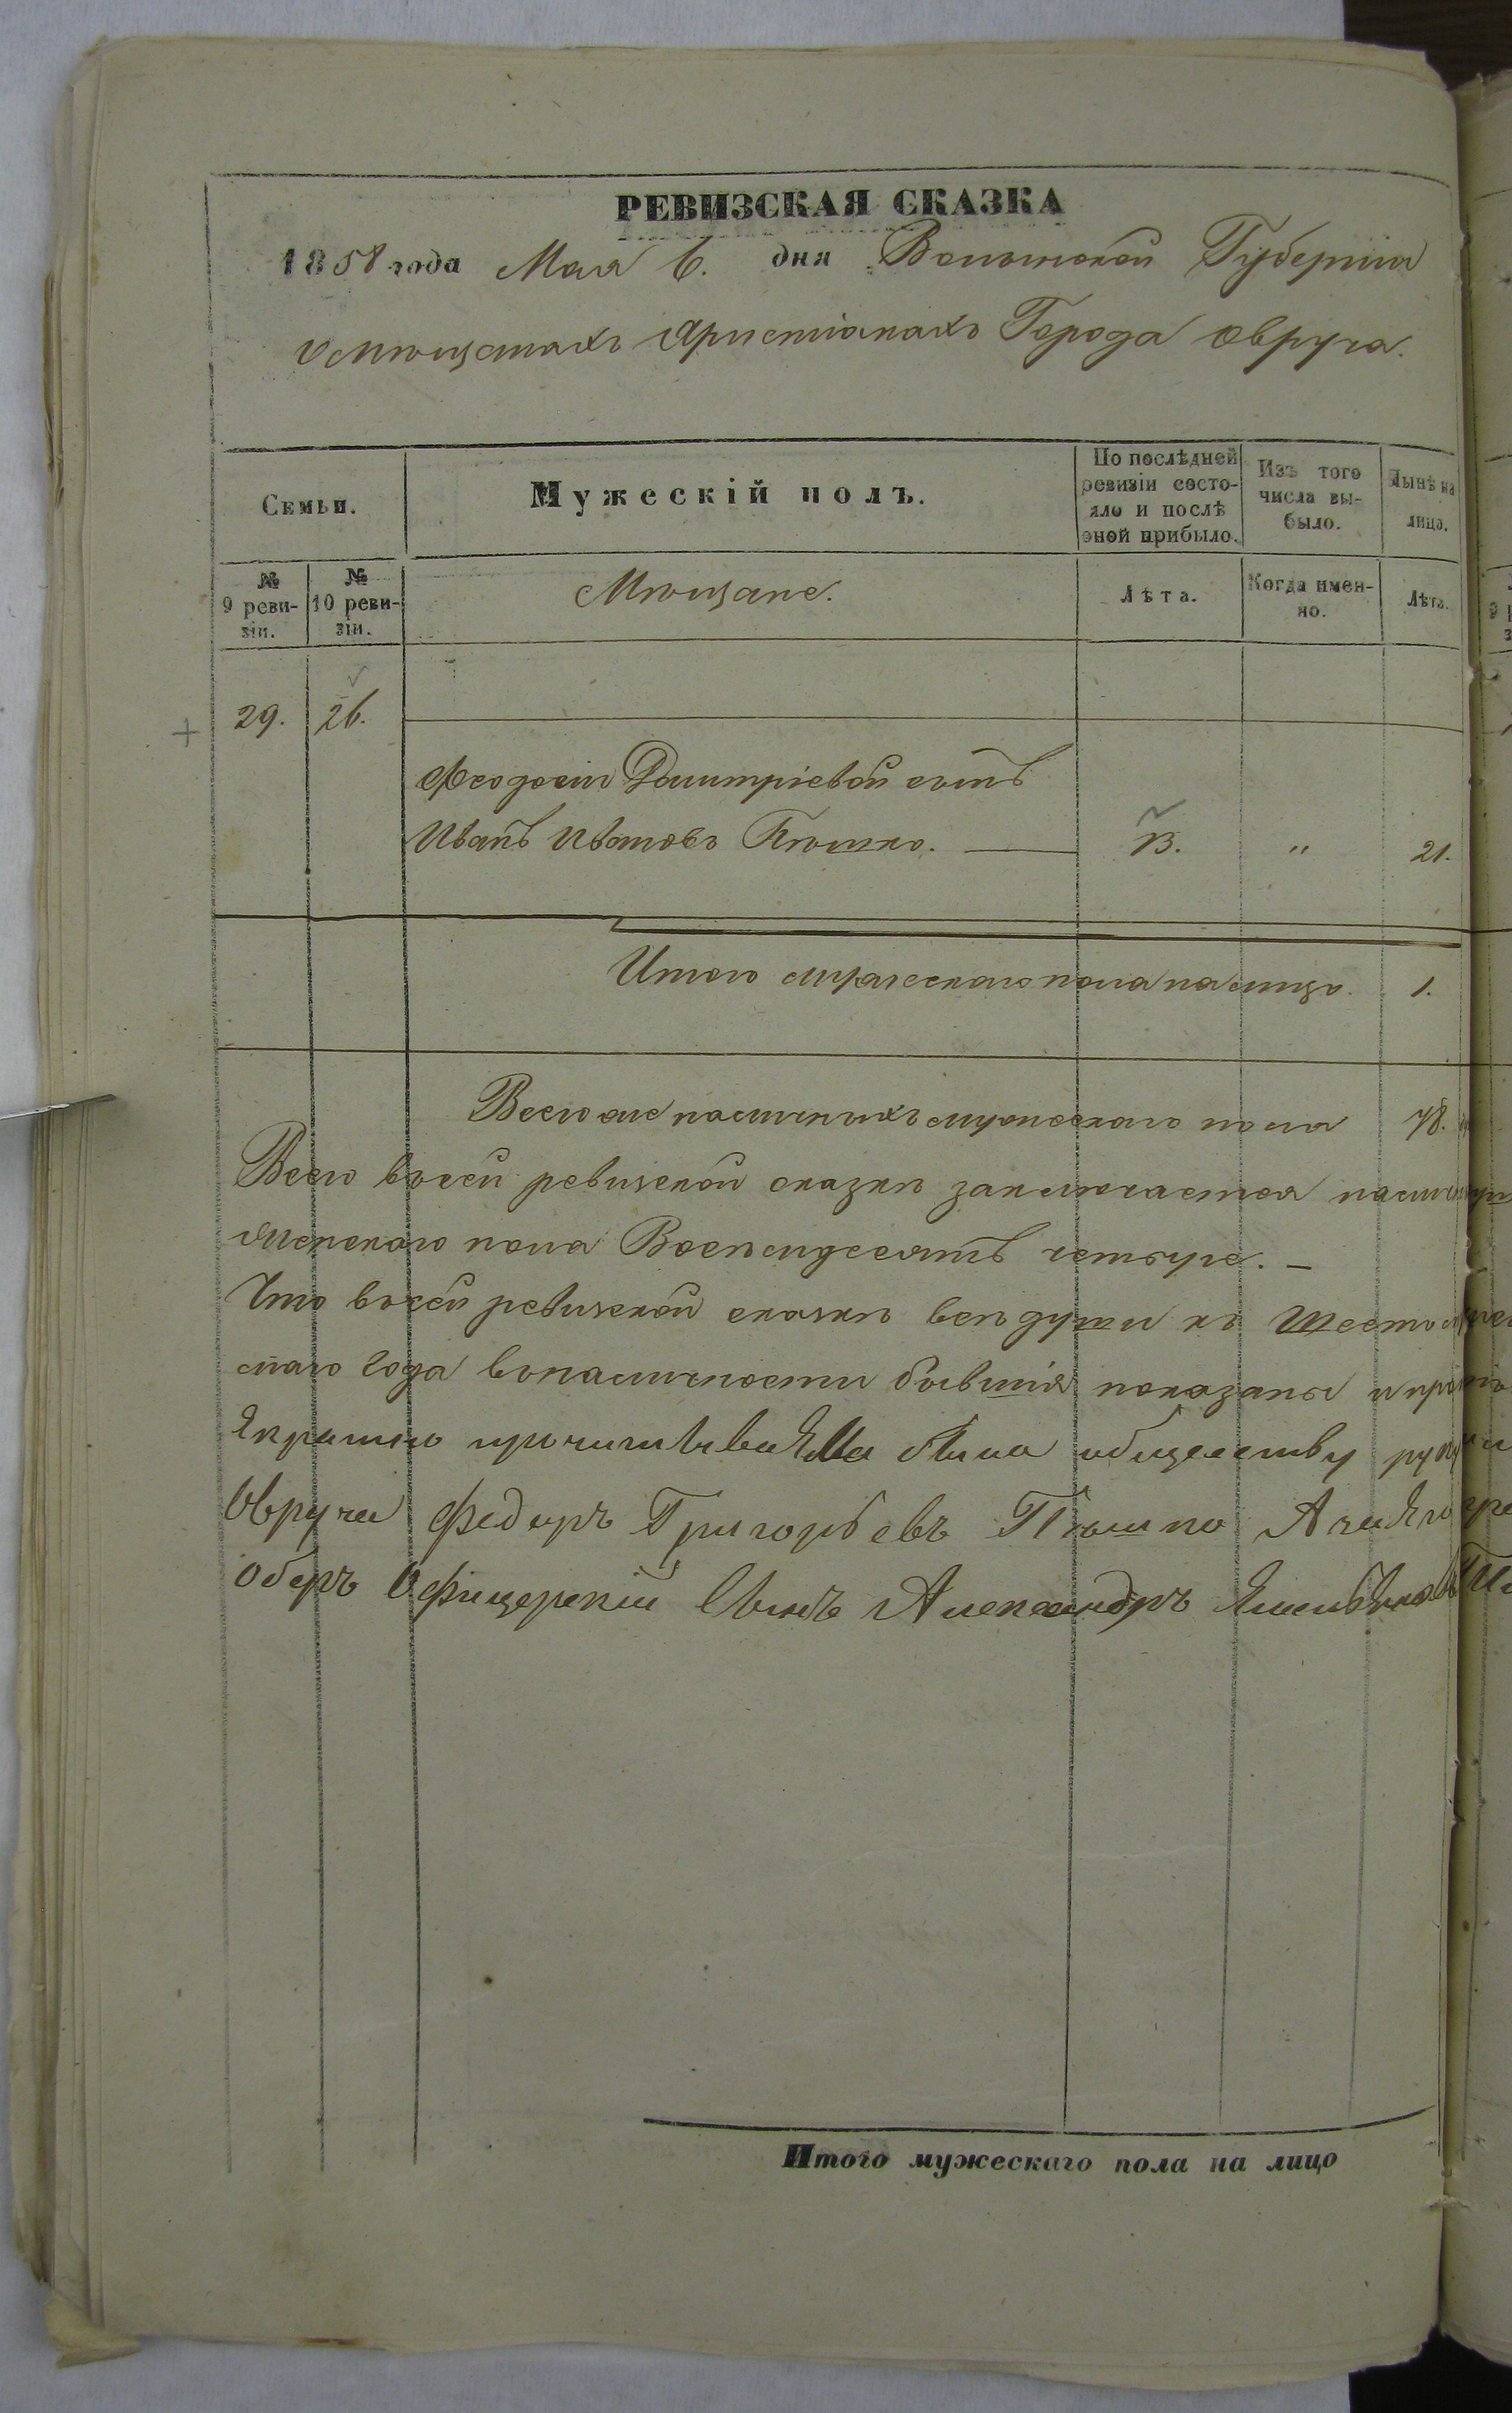 РЕВИЗСКАЯ СКАЗКА
1858 года Мая 6. дня Волынской Губернiи
о мѣщанахъ христiанахъ Города Овруча.
Семьи. Мужескiй полъ. По послѣдней ревизiи состояло и послѣ оной прибыло. Изъ того числа выбыло. Нынѣ на лицо.
№ 9 ревизiи. № 10 ревизiи. Мѣщане. Лѣта. Когда именно. Лѣта.
29. 26.
Феодосiи Димитрiевой сынъ
Иванъ Ивановъ Пѣшко. 13. " 21.
Итого мужескаго пола на лицо. 1.
Всего же наличныхъ мужескаго пола 78.
Всего въ сей ревизской сказкѣ заключается
женскаго пола Восемьдесятъ четыре. —
Что въ сей ревизской сказкѣ всѣ души къ
года въ наличности бывшiя показаны и
была обществу
Овруча Федоръ Григорьевъ Пѣшко А за Его
Оберъ Офицерскiй Сынъ Александръ
Итого мужескаго пола на лицо